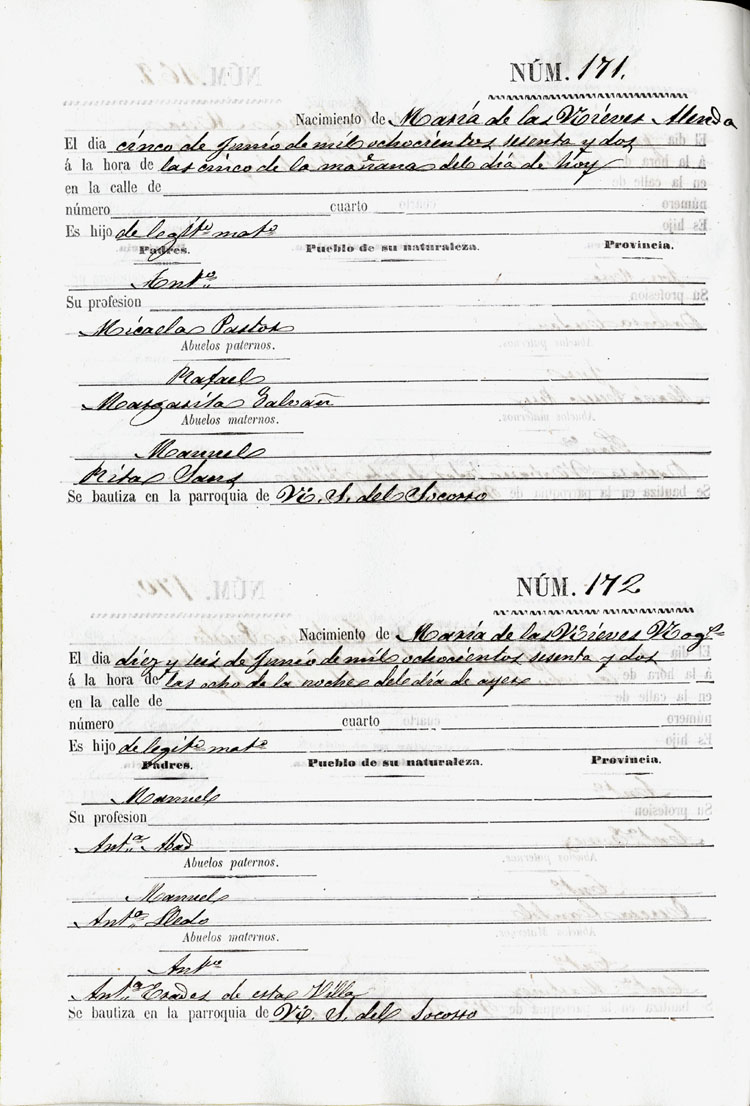 NÚM. 171.
Nacimiento de María de las Nieves Alenda
El dia cinco de Junio de mil ochocientos sesenta y dos
á la hora de las cinco de la mañana del dia de hoy
en la calle de
número cuarto
Es hijo de legit.º mat.º
Padres. Pueblo de su naturaleza. Provincia.
Ant.º
Su profesion
Micaela Pastor
Abuelos paternos.
Rafael
Margarita Galvañ
Abuelos maternos.
Manuel
Rita Sans
Se bautiza en la parroquia de N. S. del Socorro
NÚM. 172
Nacimiento de María de las Nieves
El dia diez y seis de Junio de mil ochocientos sesenta y dos
á la hora de las ocho de la noche del dia de ayer
en la calle de
número cuarto
Es hijo de legit.º mat.º
Padres. Pueblo de su naturaleza. Provincia.
Manuel
Su profesion
Ant.ª Abad
Abuelos paternos.
Manuel
Ant.ª Lledo
Abuelos maternos.
Ant.º
Ant.ª Erades de esta Villa
Se bautiza en la parroquia de N. S. del Socorro